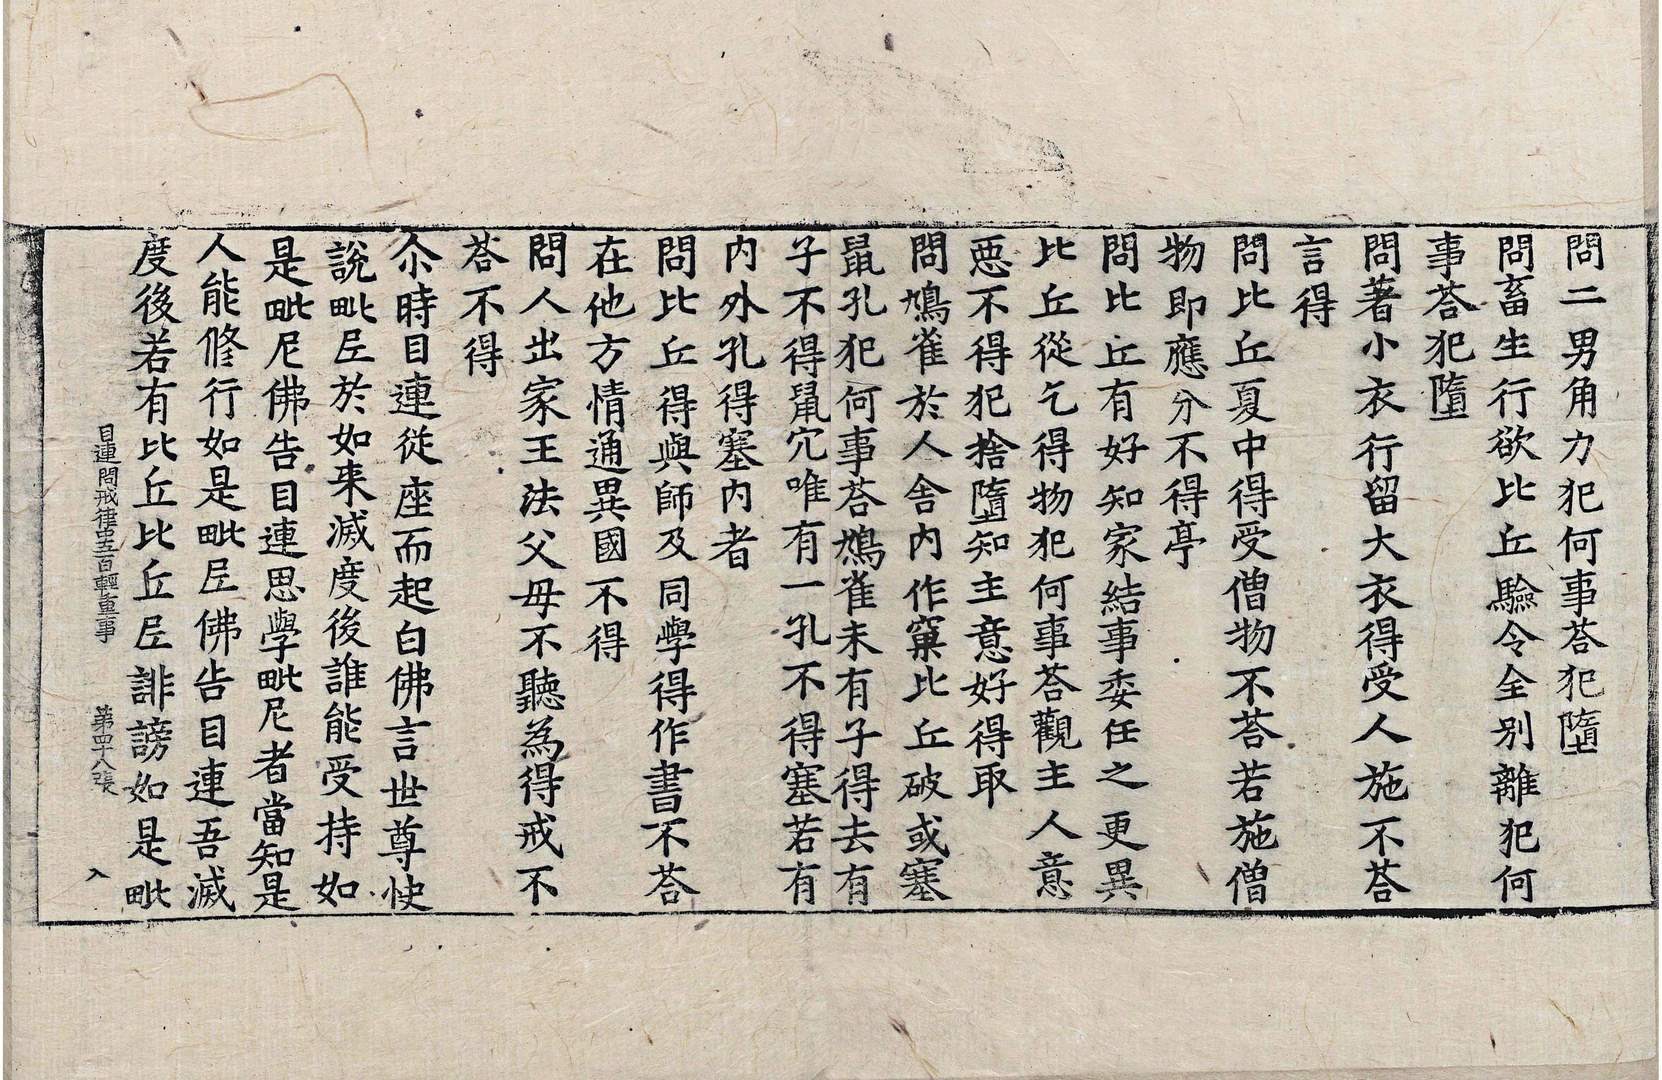 問二男角力犯何事荅犯墮
問畜生行欲比丘驗令全別離犯何
事荅犯墮
問著小衣行留大衣得受人施不荅
言得
問比丘夏中得受僧物不荅若施僧
物即應分不得亭
問比丘有好知家結事委任之更異
比丘從乞得物犯何事荅觀主人意
惡不得犯捨墮知主意好得取
問鳩雀於人舍內作窠比丘破或塞
鼠孔犯何事荅鳩雀未有子得去有
子不得鼠穴唯有一孔不得塞若有
內外孔得塞內者
問比丘得與師及同學得作書不荅
在他方情通異國不得
問人出家王法父母不聽為得戒不
荅不得
尒時目連從座而起白佛言世尊快
說毗尼於如来滅度後誰能受持如
是毗尼佛告目連思學毗尼者當知是
人能修行如是毗尼佛告目連吾滅
度後若有比丘比丘尼誹謗如是毗
目連問戒律中五百輕重事 第四十八張 入